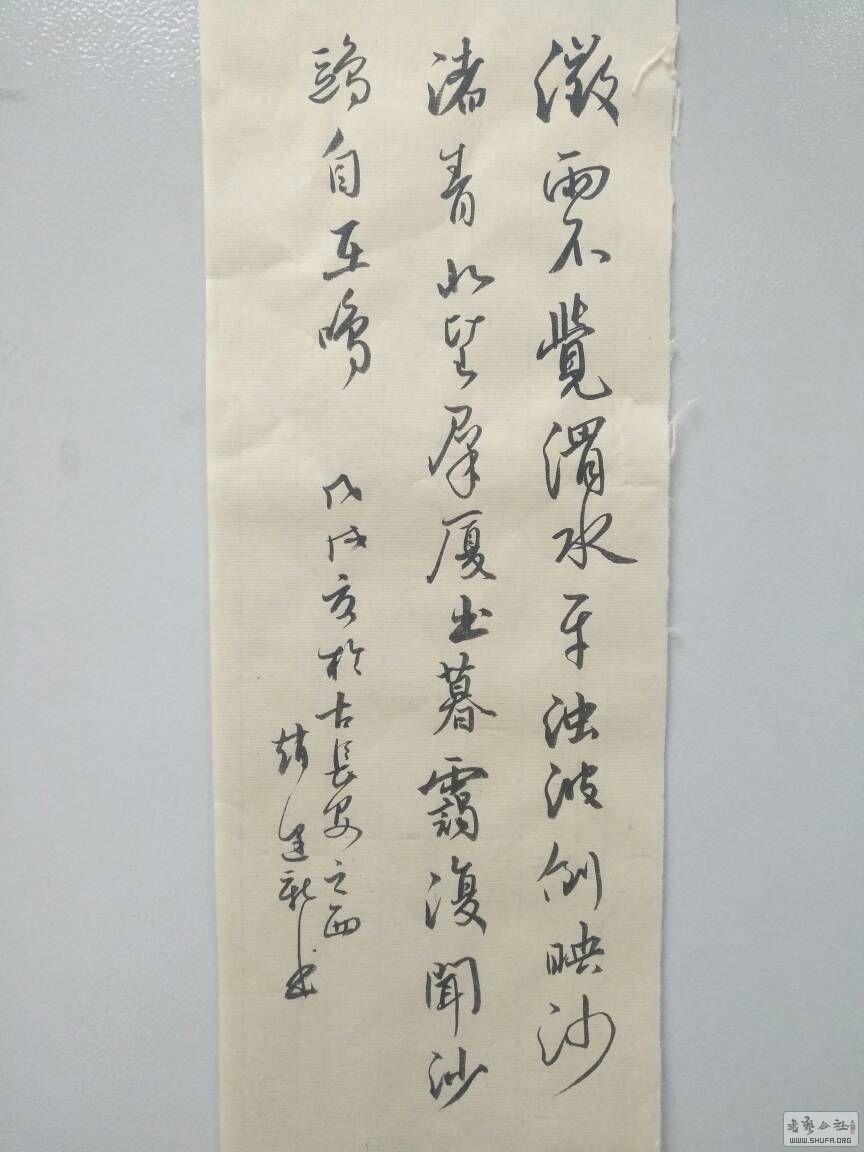 微雨不覺渭水平浊波倒映沙
渚青水望群厦出暮靄復聞沙
鷗自在鳴
戊戌於古長安之西
趙建新书
书艺公社
WWW.SHUFA.ORG